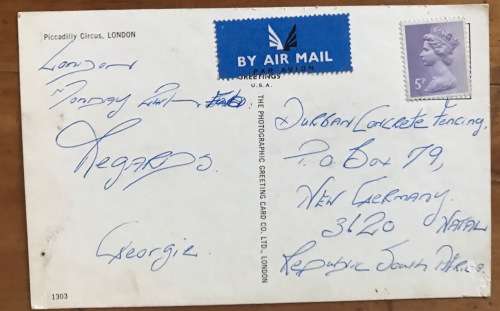 Piccadilly Circus, LONDON
London
Monday
Regards.
Georgie.
1303
BY AIR MAIL
PAR AVION
GREETINGS
U.S.A.
THE PHOTOGRAPHIC GREETING CARD CO. LTD., LONDON
5
Durban Concrete Fencing,
P.O Box 79,
New Germany.
3620 Natal
Republic South Africa.